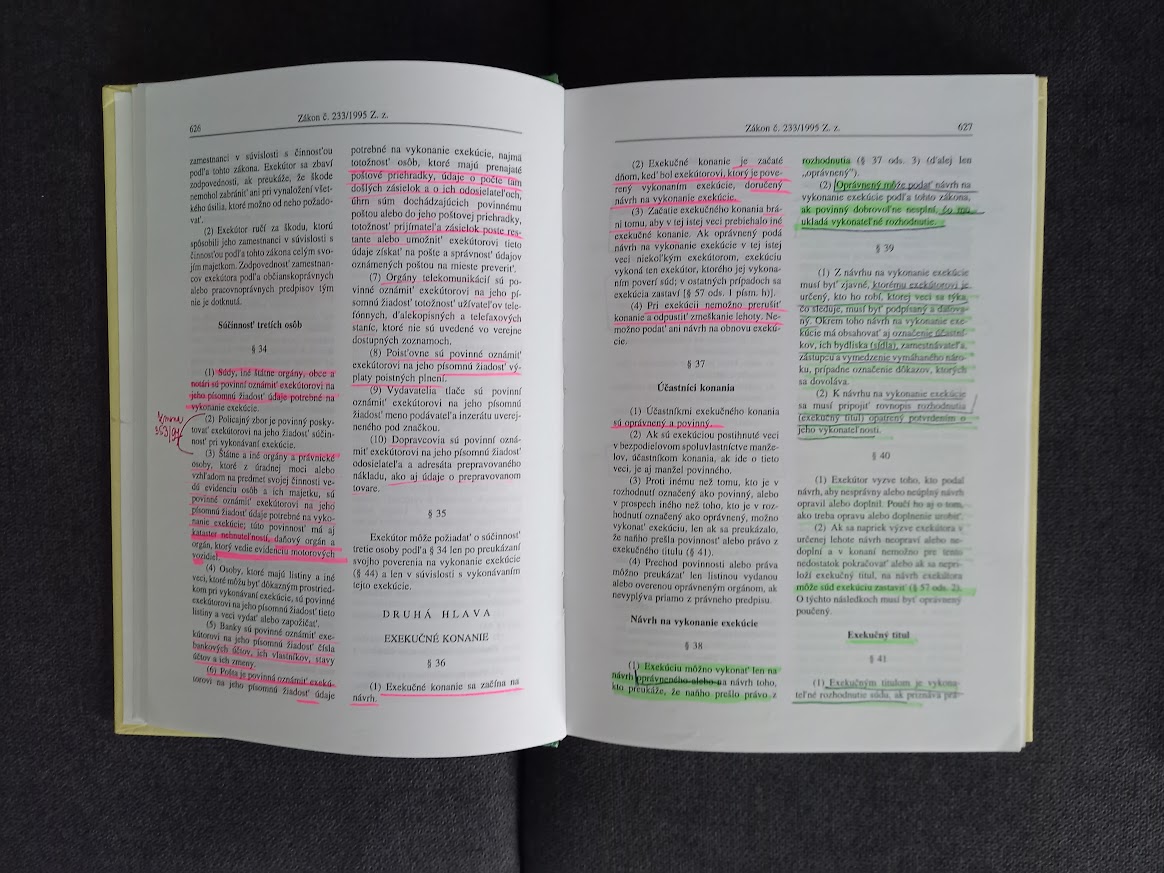 626
Zákon č. 233/1995 Z. z.
zamestnanci v súvislosti s činnosťou
podľa tohto zákona. Exekútor sa zbaví
zodpovednosti, ak preukáže, že škode
nemohol zabrániť ani pri vynaložení všet-
kého úsilia, ktoré možno od neho požado-
vať.
(2) Exekútor ručí za škodu, ktorú
spôsobili jeho zamestnanci v súvislosti s
činnosťou podľa tohto zákona celým svo-
jím majetkom. Zodpovednosť zamestnan-
cov exekútora podľa občianskoprávnych
alebo pracovnoprávnych predpisov tým
nie je dotknutá.
Súčinnosť tretích osôb
§ 34
(1) Súdy, iné štátne orgány, obce a
notári sú povinní oznámiť exekútorovi na
jeho písomnú žiadosť údaje potrebné na
vykonanie exekúcie.
(2) Policajný zbor je povinný posky-
tovať exekútorovi na jeho žiadosť súčin-
nosť pri vykonávaní exekúcie.
353/97
(3) Štátne a iné orgány a právnické
osoby, ktoré z úradnej moci alebo
vzhľadom na predmet svojej činnosti ve-
dú evidenciu osôb a ich majetku, sú
povinné oznámiť exekútorovi na jeho
písomnú žiadosť údaje potrebné na vyko-
nanie exekúcie; túto povinnosť má aj
kataster nehnuteľností, daňový orgán a
orgán, ktorý vedie evidenciu motorových
vozidiel.
(4) Osoby, ktoré majú listiny a iné
veci, ktoré môžu byť dôkazným prostried-
kom pri vykonávaní exekúcie, sú povinné
exekútorovi na jeho písomnú žiadosť tieto
listiny a veci vydať alebo zapožičať.
(5) Banky sú povinné oznámiť exe-
kútorovi na jeho písomnú žiadosť čísla
bankových účtov, ich vlastníkov, stavy
účtov a ich zmeny.
(6) Pošta je povinná oznámiť exekú-
torovi na jeho písomnú žiadosť údaje
potrebné na vykonanie exekúcie, najmä
totožnosť osôb, ktoré majú prenajaté
poštové priehradky, údaje o počte tam
došlých zásielok a o ich odosielateľoch,
úhrn súm dochádzajúcich povinnému
poštou alebo do jeho poštovej priehradky,
totožnosť prijímateľa zásielok poste res-
tante alebo umožniť exekútorovi tieto
údaje získať na pošte a správnosť údajov
oznámených poštou na mieste preveriť.
(7) Orgány telekomunikácií sú po-
vinné oznámiť exekútorovi na jeho pí-
somnú žiadosť totožnosť užívateľov tele-
fónnych, ďalekopisných a telefaxových
staníc, ktoré nie sú uvedené vo verejne
dostupných zoznamoch.
(8) Poisťovne sú povinné oznámiť
exekútorovi na jeho písomnú žiadosť vý-
platy poistných plnení.
(9) Vydavatelia tlače sú povinní
oznámiť exekútorovi na jeho písomnú
žiadosť meno podávateľa inzerátu uverej-
neného pod značkou.
(10) Dopravcovia sú povinní ozná-
miť exekútorovi na jeho písomnú žiadosť
odosielateľa a adresáta prepravovaného
nákladu, ako aj údaje o prepravovanom
tovare.
§ 35
Exekútor môže požiadať o súčinnosť
tretie osoby podľa § 34 len po preukázaní
svojho poverenia na vykonanie exekúcie
(§ 44) a len v súvislosti s vykonávaním
tejto exekúcie.
DRUHÁ HLAVA
EXEKUČNÉ KONANIE
§ 36
(1) Exekučné konanie sa začína na
návrh.
Zákon č. 233/1995 Z. z.
627
(2) Exekučné konanie je začaté
dňom, keď bol exekútorovi, ktorý je pove-
rený vykonaním exekúcie, doručený
návrh na vykonanie exekúcie.
(3) Začatie exekučného konania brá-
ni tomu, aby v tej istej veci prebiehalo iné
exekučné konanie. Ak oprávnený podá
návrh na vykonanie exekúcie v tej istej
veci niekoľkým exekútorom, exekúciu
vykoná ten exekútor, ktorého jej vykona-
ním poverí súd; v ostatných prípadoch sa
exekúcia zastaví [§ 57 ods. 1 písm. h)].
(4) Pri exekúcii nemožno prerušiť
konanie a odpustiť zmeškanie lehoty. Ne-
možno podať ani návrh na obnovu exekú-
cie.
§ 37
Účastníci konania
(1) Účastníkmi exekučného konania
sú oprávnený a povinný.
(2) Ak sú exekúciou postihnuté veci
v bezpodielovom spoluvlastníctve manže-
lov, účastníkom konania, ak ide o tieto
veci, je aj manžel povinného.
(3) Proti inému než tomu, kto je v
rozhodnutí označený ako povinný, alebo
v prospech iného než toho, kto je v roz-
hodnutí označený ako oprávnený, možno
vykonať exekúciu, len ak sa preukázalo,
že naňho prešla povinnosť alebo právo z
exekučného titulu (§ 41).
(4) Prechod povinnosti alebo práva
možno preukázať len listinou vydanou
alebo overenou oprávneným orgánom, ak
nevyplýva priamo z právneho predpisu.
Návrh na vykonanie exekúcie
§ 38
(1) Exekúciu možno vykonať len na
návrh oprávneného alebo na návrh toho,
kto preukáže, že naňho prešlo právo z
rozhodnutia (§ 37 ods. 3) (ďalej len
„oprávnený").
(2) Oprávnený môže podať návrh na
vykonanie exekúcie podľa tohto zákona,
ak povinný dobrovoľne nesplní, čo mu
ukladá vykonateľné rozhodnutie.
§ 39
(1) Z návrhu na vykonanie exekúcie
musí byť zjavné, ktorému exekútorovi je
určený, kto ho robí, ktorej veci sa týka,
čo sleduje, musí byť podpísaný a datova-
ný. Okrem toho návrh na vykonanie exe-
kúcie má obsahovať aj označenie účastní-
kov, ich bydliska (sídla), zamestnávateľa,
zástupcu a vymedzenie vymáhaného náro-
ku, prípadne označenie dôkazov, ktorých
sa dovoláva.
(2) K návrhu na vykonanie exekúcie
sa musí pripojiť rovnopis rozhodnutia
(exekučný titul) opatrený potvrdením o
jeho vykonateľnosti.
§ 40
(1) Exekútor vyzve toho, kto podal
návrh, aby nesprávny alebo neúplný návrh
opravil alebo doplnil. Poučí ho aj o tom,
ako treba opravu alebo doplnenie urobiť.
(2) Ak sa napriek výzve exekútora v
určenej lehote návrh neopraví alebo ne-
doplní a v konaní nemožno pre tento
nedostatok pokračovať alebo ak sa nepri-
loží exekučný titul, na návrh exekútora
môže súd exekúciu zastaviť (§ 57 ods. 2).
O týchto následkoch musí byť oprávnený
poučený.
Exekučný titul
§ 41
(1) Exekučným titulom je vykona-
teľné rozhodnutie súdu, ak priznáva prá-